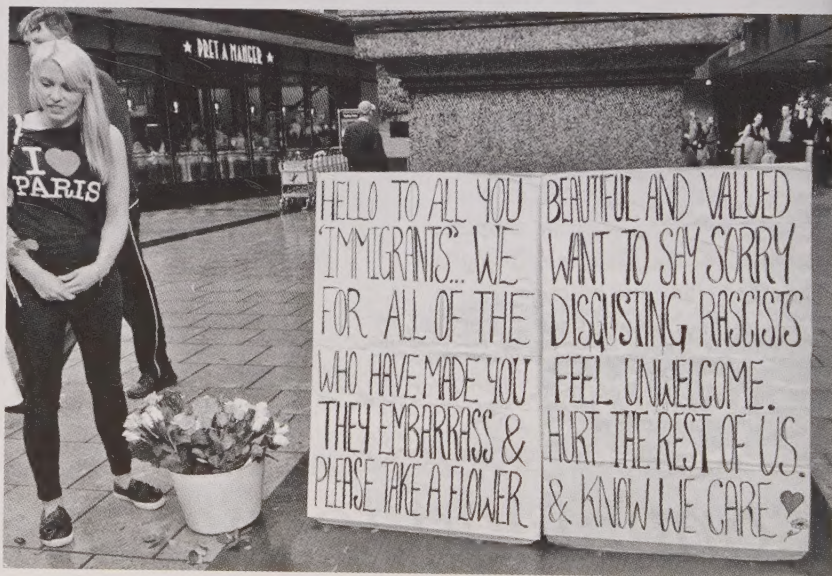 ★ PRET A MANGER ★
I ♥
PARIS
HELLO TO ALL YOU BEAUTIFUL AND VALUED
'IMMIGRANTS'... WE WANT TO SAY SORRY
FOR ALL OF THE DISGUSTING RASCISTS
WHO HAVE MADE YOU FEEL UNWELCOME.
THEY EMBARRASS & HURT THE REST OF US.
PLEASE TAKE A FLOWER & KNOW WE CARE ♥